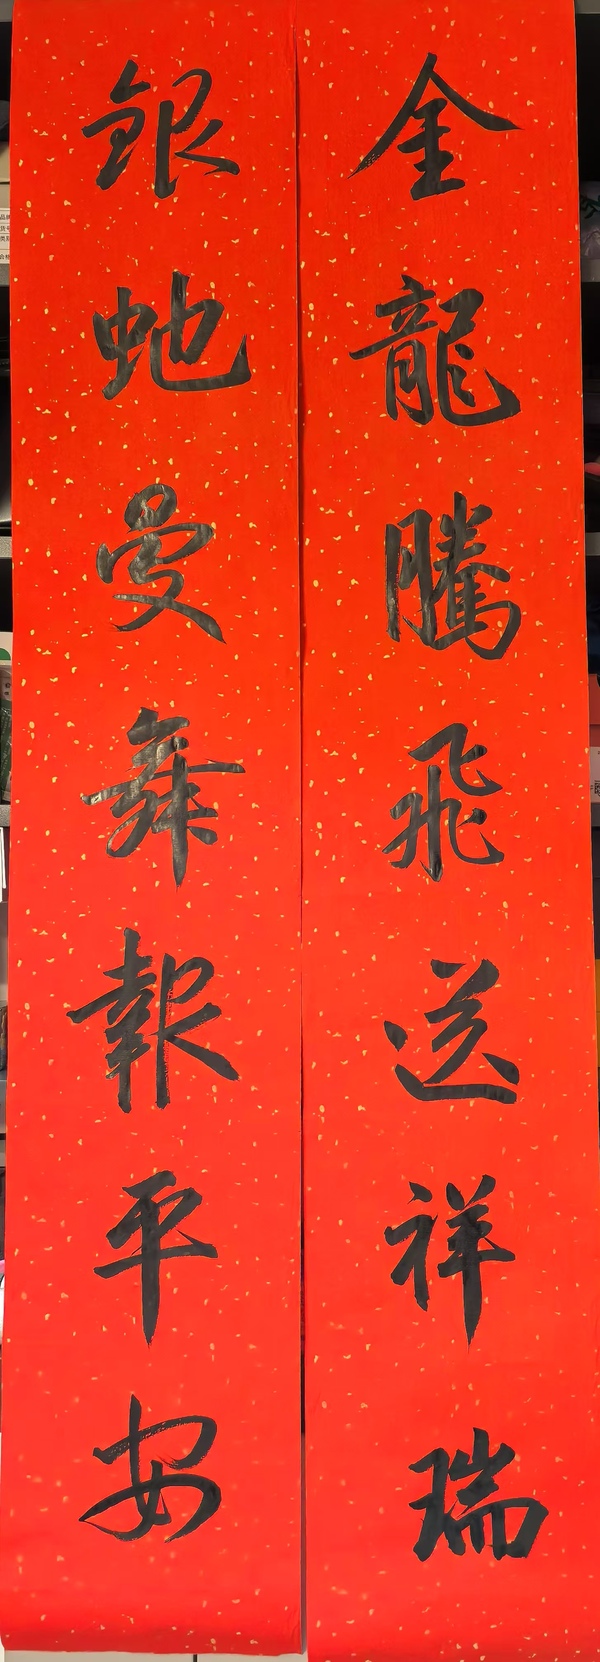 金龍騰飛送祥瑞
銀虵曼舞報平安